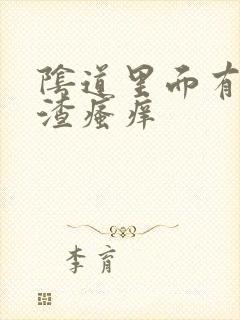 陰道里而有
渣瘙痒
李育